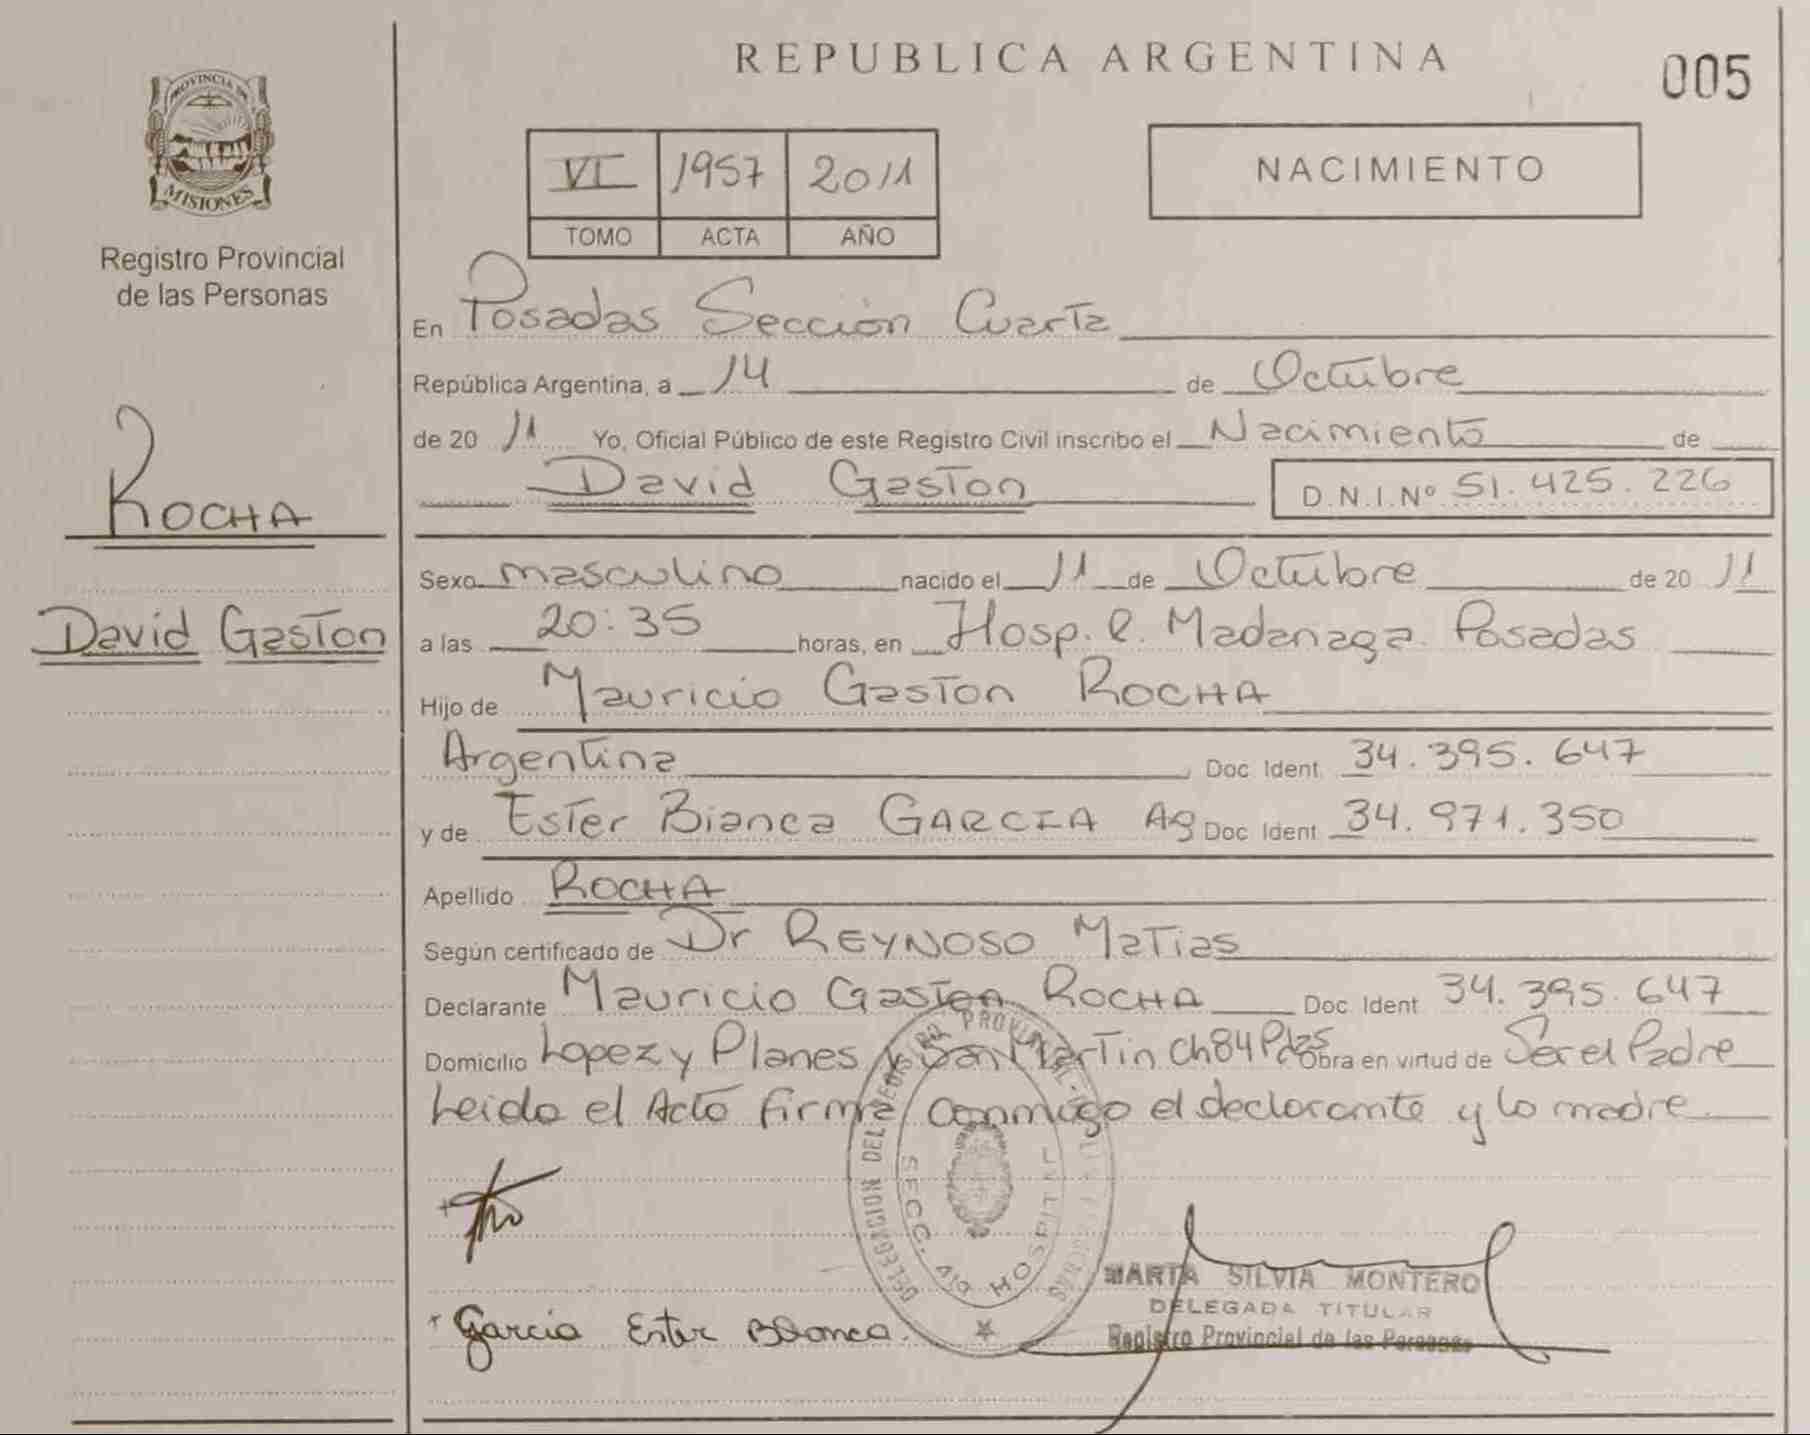 REPUBLICA ARGENTINA
005
PROVINCIA DE
MISIONES
Registro Provincial
de las Personas
VI 1957 2011
TOMO ACTA AÑO
NACIMIENTO
En Posadas Sección Cuarta
República Argentina, a 14 de Octubre
de 20 11 Yo, Oficial Público de este Registro Civil inscribo el Nacimiento de
David Gaston D.N.I.Nº 51.425.226
ROCHA
David Gaston
Sexo masculino nacido el 11 de Octubre de 20 11
a las 20:35 horas, en Hosp. R. Madariaga Posadas
Hijo de Mauricio Gaston ROCHA
Argentina Doc Ident 34.395.647
y de Ester Bianca GARCIA Ag Doc Ident 34.971.350
Apellido ROCHA
Según certificado de Dr REYNOSO Matias
Declarante Mauricio Gaston ROCHA Doc Ident 34.395.647
Domicilio Lopez y Planes y San Martin Ch84 Pdas Obra en virtud de Ser el Padre
Leida el Acta firma conmigo el declarante y la madre
DELEGACION DEL REGISTRO PROVINCIAL
SECC. 4ta HOSPITAL
Garcia Ester Bianca.
MARTA SILVIA MONTERO
DELEGADA TITULAR
Registro Provincial de las Personas